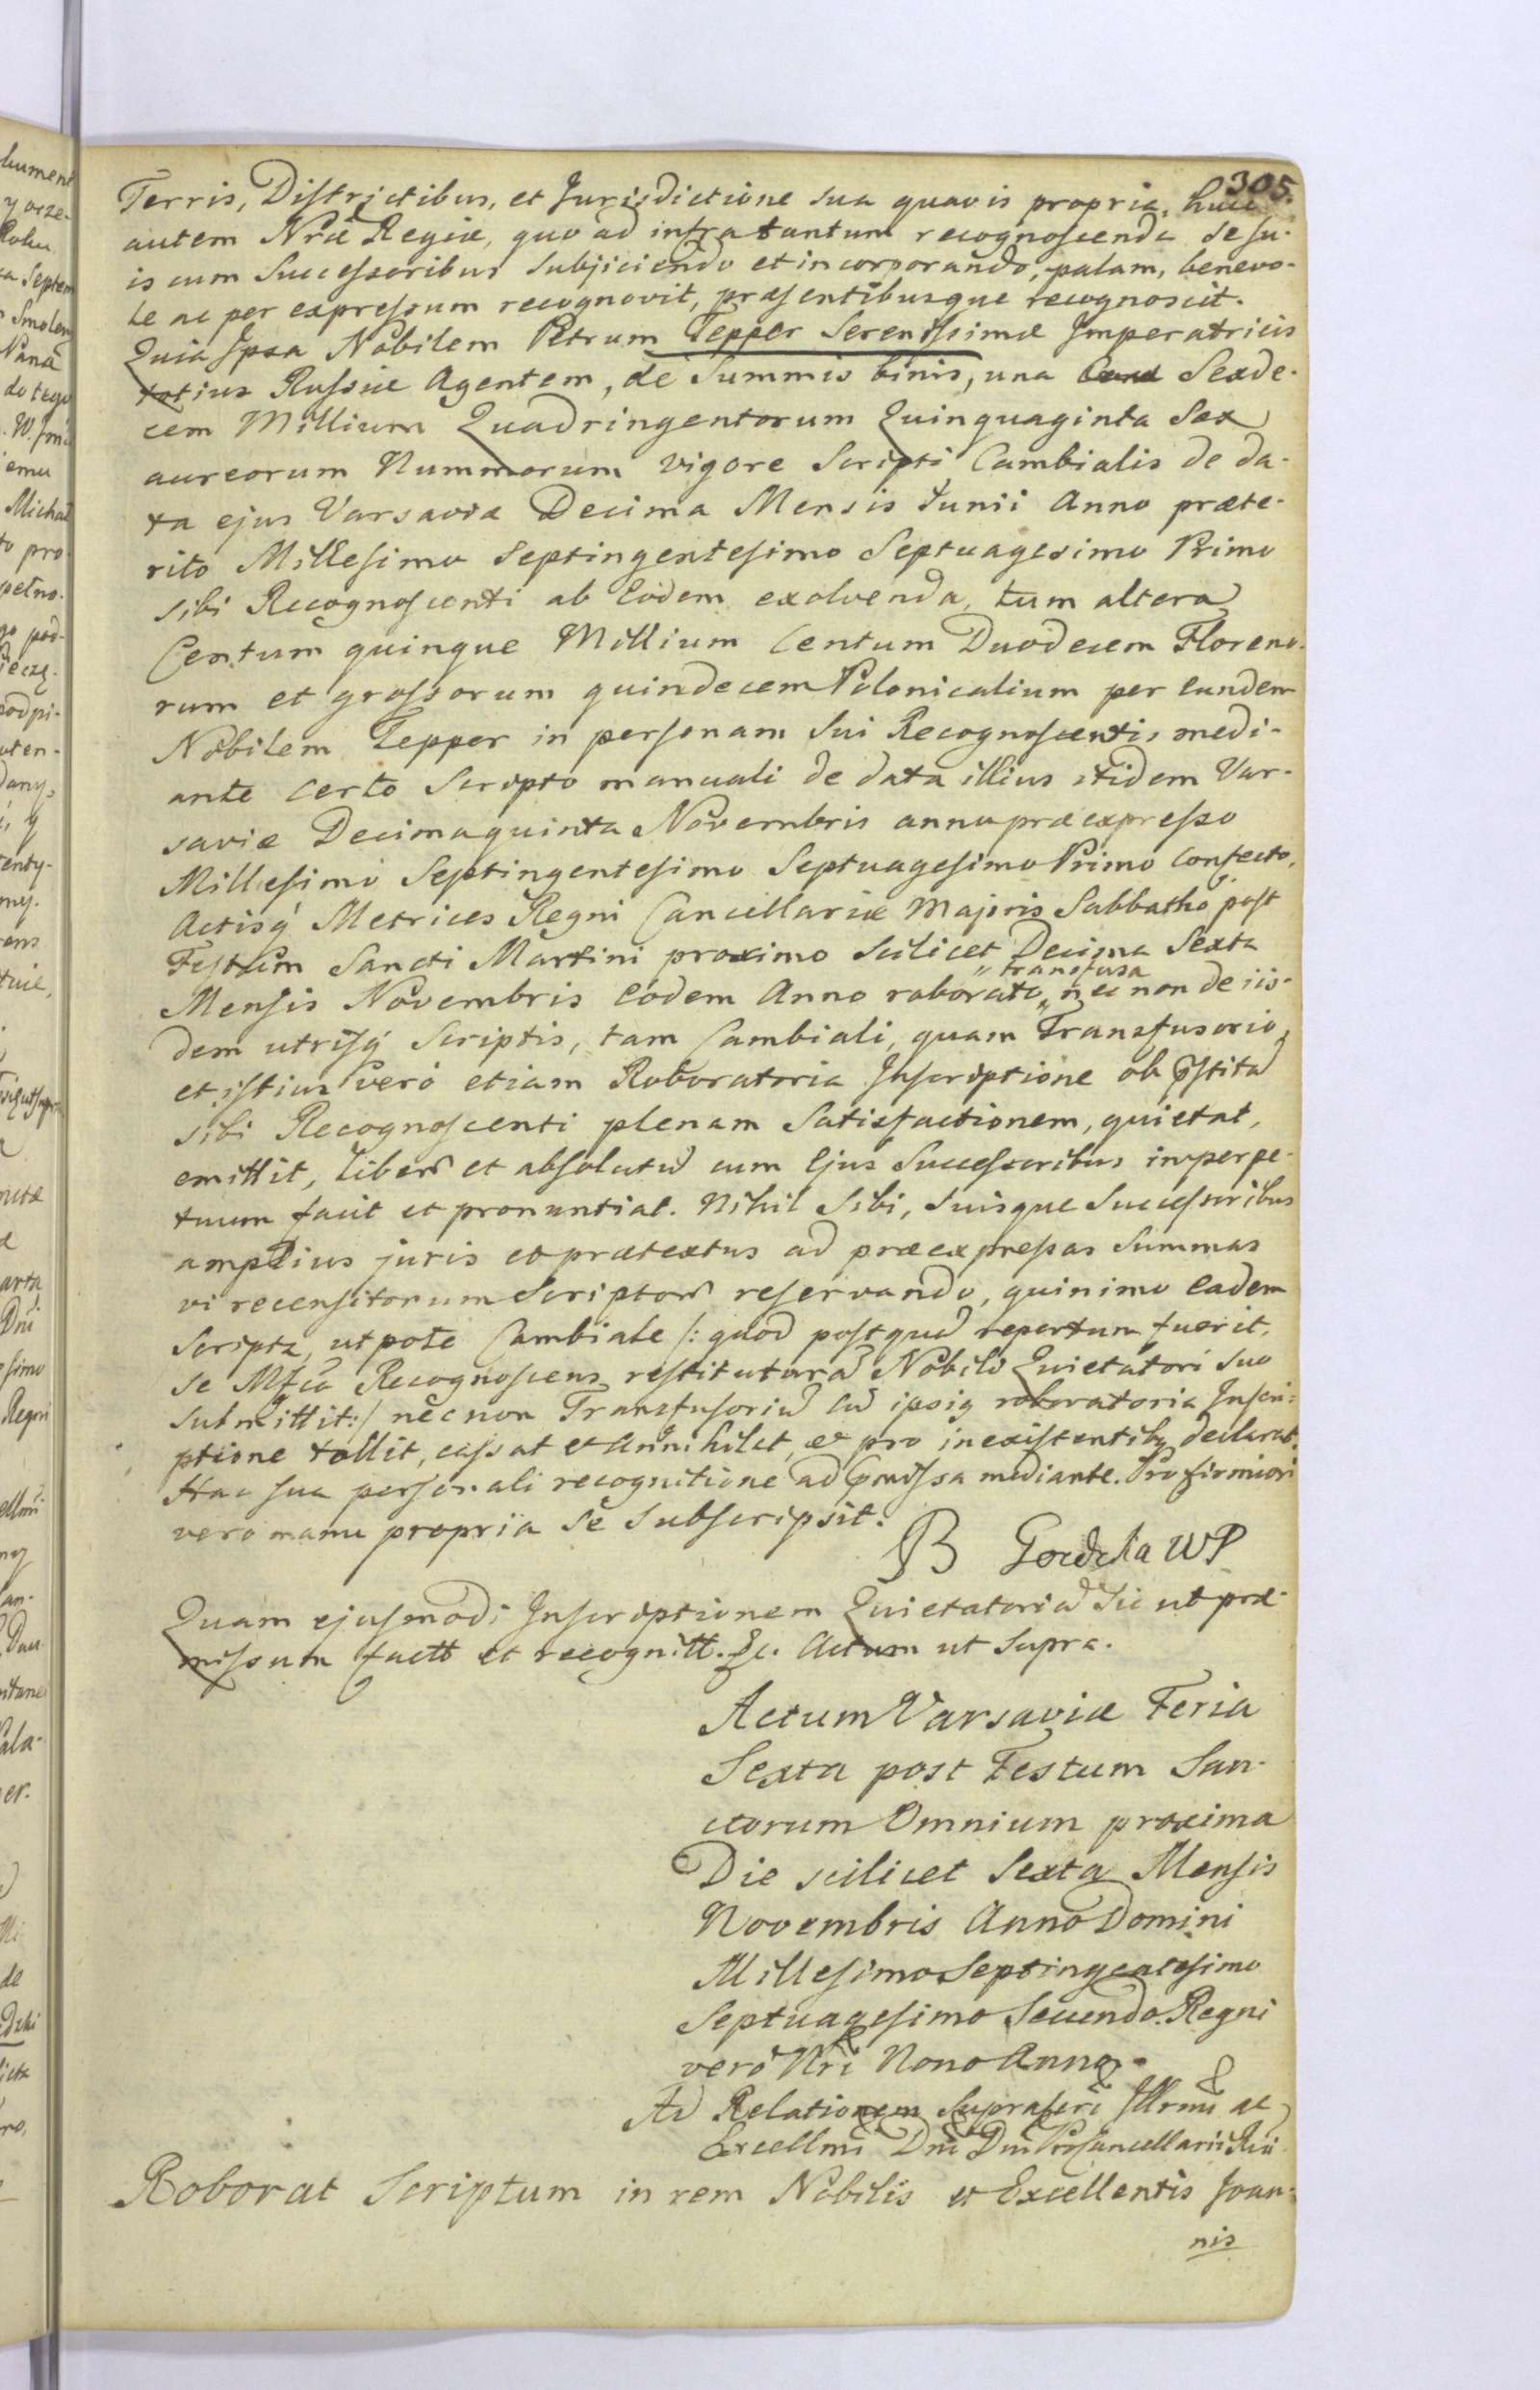 305.
Terris, Districtibus, et Jurisdictione sua quavis propria, huic
autem Nræ Regiæ, quo ad infra tantum recognoscenda se su-
is cum Successoribus subjiciendo et incorporando, palam, benevo-
le ac per expressum recognovit, præsentibusque recognoscit.
Quia Ipsa Nobilem Petrum Tepper Serenissimæ Imperatricis
totius Russiæ Agentem, de Summis binis, una Sexde-
cem Millium Quadringentorum Quinquaginta Sex
aureorum Nummorum vigore Scripti Cambialis de da-
ta ejus Varsaviæ Decima Mensis Junii Anno præte-
rito Millesimo Septingentesimo Septuagesimo Primo
sibi Recognoscenti ab Eodem exolvenda, tum altera
Centum quinque Millium Centum Duodecem Floreno-
rum et grossorum quindecem Polonicalium per eundem
Nobilem Tepper in personam sui Recognoscentis medi-
ante certo Scripto manuali de data illius itidem Var-
saviæ Decimaquinta Novembris anno præexpresso
Millesimo Septingentesimo Septuagesimo Primo confecto,
Actisq Metrices Regni Cancellariæ Majoris Sabbatho post
Festum Sancti Martini proximo scilicet Decima Sexta
transfusa
Mensis Novembris eodem Anno roborato, nec non de iis-
dem utrisq Scriptis, tam Cambiali, quam Transfusorio,
et istius vero etiam Roboratoria Inscriptione ob pstitã
sibi Recognoscenti plenam Satisfactionem, quietat,
emittit, liberũ et absolutũ cum Ejus Successoribus in perpe-
tuum facit et pronuntiat. Nihil Sibi, suisque Successoribus
amplius juris et prætextus ad præexpressas Summas
vi recensitorum Scriptorũ reservando, quinimo eadem
Scripta, utpote Cambiale /: quod postquã repertum fuerit,
se Mfca Recognoscens restituturã Nobili Quietatori suo
submittit:/ necnon Transfusoriũ cũ ipsiq roboratoria Inscri-
ptione tollit, cassat et annihilat, et pro inexistentibq declarat.
Hac sua personali recognitione ad pmissa mediante. Pro firmiori
vero manu propria se subscripsit.
B WP
Quam ejusmodi Inscriptionem Quietatoriã sic ut præ-
missum factt et recognitt. &c. Actum ut supra.
Actum Varsaviæ Feria
Sexta post Festum San-
ctorum Omnium proxima
Die scilicet Sexta Mensis
Novembris Anno Domini
Millesimo Septingentesimo
Septuagesimo Secundo. Regni
vero Nri Nono Anno.
Ad Relationem Suprascri Illrmi ac
Excellmi Dni Dni ProCancellarii
Roborat Scriptum in rem Nobilis et Excellentis Joan-
nis